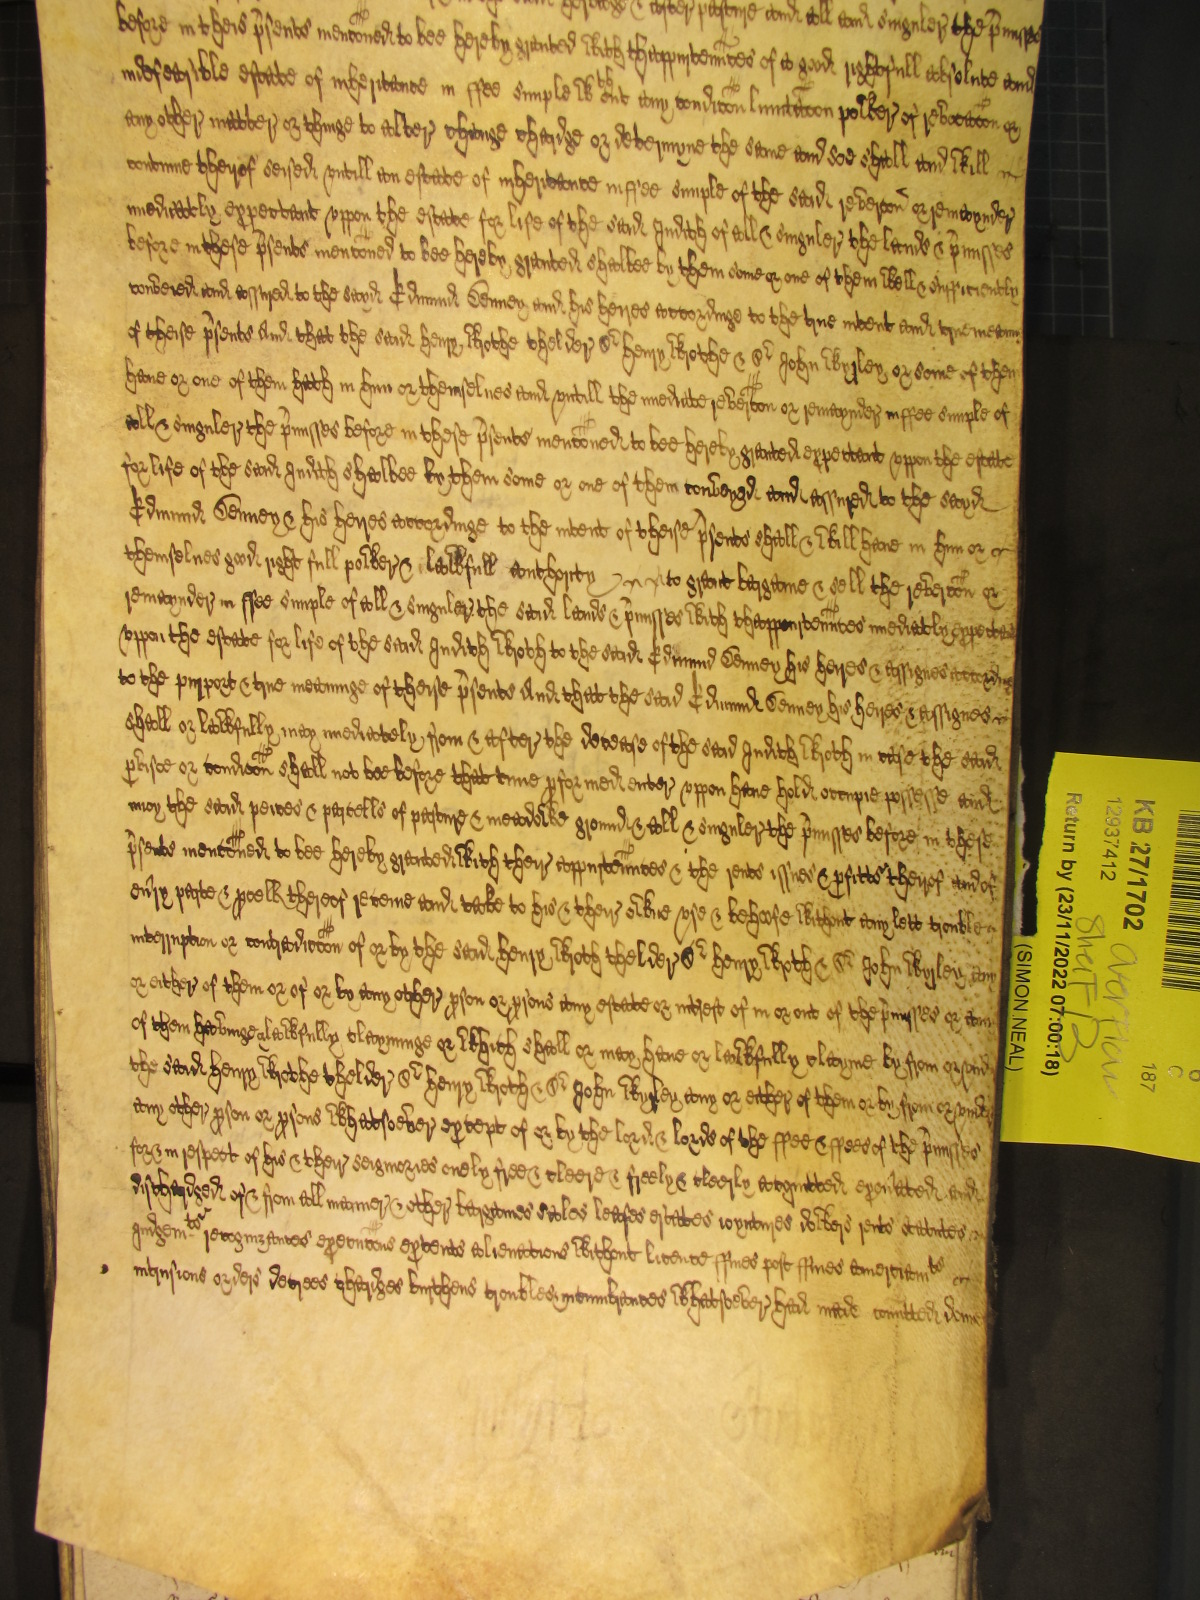 heritage & after pasture and all and singuler the p̃misses
before in theis p̃sents menconed to bee hereby granted with thappurtennces of a good rightfull absolute and
indefeasible estate of inheritance in ffee simple wthout any condicon limitacon power of revocacon or
any other matter or thinge to alter change chardge or determyne the same and soe shall and will
contynue therof seised untill an estate of inheritance in ffee simple of the said revercon or remaynder
imediatly expectant uppon the estate for life of the said Judith of all & singuler the lands & p̃misses
before in these p̃sents mentoned to bee hereby granted shalbee by them some or one of them well & sufficiently
conveied and assured to the sayd Edmund Denney and his heires accordinge to the true intent and true meaninge
of theise p̃sents And that the said Henry Wrothe thelder Sr Henry Wrothe & Sr John Wyrley or some of them
haue or one of them hath in him or themselues and untill the imediate revercon or remaynder in ffee simple of
all & singuler the p̃misses before in these p̃sents mentoned to bee hereby granted expectant uppon the estate
for life of the said Judith shalbee by them some or one of them conveyed and assured to the sayd
Edmund Denney & his heires accordinge to the intent of theise p̃sents shall & will haue in him or
themselues good right full power & lawfull authority to grant bargaine & sell the revercon or
remaynder in ffee simple of all & singuler the said lands & p̃misses with thappurtennces imediatly expectant
uppon the estate for life of the said Judith Wroth to the said Edmund Denney his heires & assignes accordinge
to the purport & true meaninge of theise p̃sents And that the said Edmund Denney his heires & assignes
shall or lawfully may imediately from & after the decease of the said Judith Wroth in case the said
pviso or condicon shall not bee before that time pformed enter uppon haue hold occupie possesse and
inioy the said peices & parcells of pasture & meadowe ground & all & singuler the p̃misses before in these
p̃sents mentoned to bee hereby granted with their appurtennces & the rents issues & pfitts therof and of
eu'ry parte & pcell thereof receiue and take to his & their owne use & behoofe without any lett trouble
interruption or contradiccon of or by the said Henry Wroth thelder Sr Henry Wroth & Sr John Wyrley any
or either of them or of or by any other pson or psons any estate or intrest of in or out of the p̃misses or any
of them haveinge lawfully claymynge or which shall or may haue or lawfully clayme by from or under
the said Henry Wrothe thelder Sr Henry Wroth & Sr John Wyrley any or either of them or by from or under
any other pson or psons whatsoever except of or by the lord & lords of the ffee & ffees of the p̃misses
for & in respect of his & their seignories onely free & cleere & freely & cleerly acquitted exonerated and
dischardged of & from all manner & other bargaines sales leases estates ioyntures dowers rents statutes
Judgemts recognizances execucons extents alienations without licence ffines post ffines amerciamts
intrusions orders decrees chardges burthens troubles incumbrances whatsoever had made comitted done
KB 27/1702
12937412
Return by (23/11/2022 07:00:18)
(SIMON NEAL)
187
C